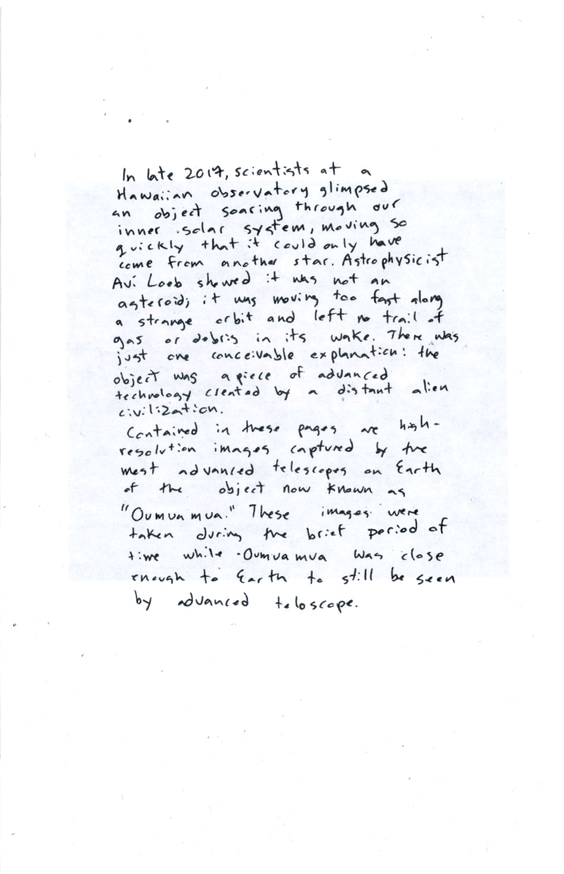 In late 2017, scientists at a
Hawaiian observatory glimpsed
an object soaring through our
inner solar system, moving so
quickly that it could only have
come from another star. Astrophysicist
Avi Loeb showed it was not an
asteroid; it was moving too fast along
a strange orbit and left no trail of
gas or debris in its wake. There was
just one conceivable explanation: the
object was a piece of advanced
technology created by a distant alien
civilization.
Contained in these pages are high-
resolution images captured by the
most advanced telescopes on Earth
of the object now known as
"Oumuamua." These images were
taken during the brief period of
time while Oumuamua was close
enough to Earth to still be seen
by advanced teloscope.